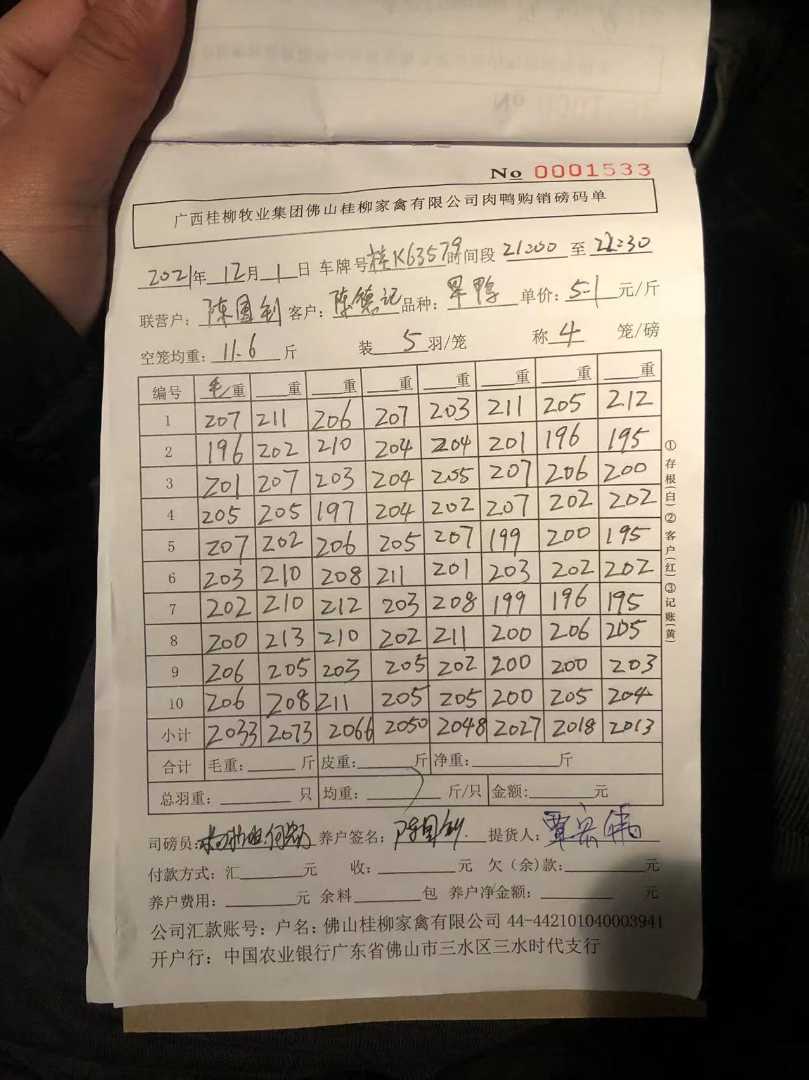 No 0001533
广西桂柳牧业集团佛山桂柳家禽有限公司肉鸭购销磅码单
2021年 12月 1日 车牌号 桂K63579 时间段 21:00 至 22:30
联营户: 陈国钊 客户: 陈德记 品种: 旱鸭 单价: 5.1 元/斤
空笼均重: 11.6 斤 装 5 羽/笼 称 4 笼/磅
编号 毛重 重 重 重 重 重 重 重
1 207 211 206 207 203 211 205 212
2 196 202 210 204 204 201 196 195
3 201 207 203 204 205 207 206 200
4 205 205 197 204 202 207 202 202
5 207 202 206 205 207 199 200 195
6 203 210 208 211 201 203 202 202
7 202 210 212 203 208 199 196 195
8 200 213 210 202 211 200 206 205
9 206 205 203 205 202 200 200 203
10 206 208 211 205 205 200 205 204
小计 2033 2073 2066 2050 2048 2027 2018 2013
合计 毛重: 斤 皮重: 斤 净重: 斤
总羽重: 只 均重: 斤/只 金额: 元
司磅员: 养户签名: 陈国钊 提货人: 覃宏伟
付款方式: 汇 元 收: 元 欠(余)款: 元
养户费用: 元 余料 包 养户净金额: 元
公司汇款账号: 户名: 佛山桂柳家禽有限公司 44-442101040003941
开户行: 中国农业银行广东省佛山市三水区三水时代支行
①存根(白)②客户(红)③记账(黄)